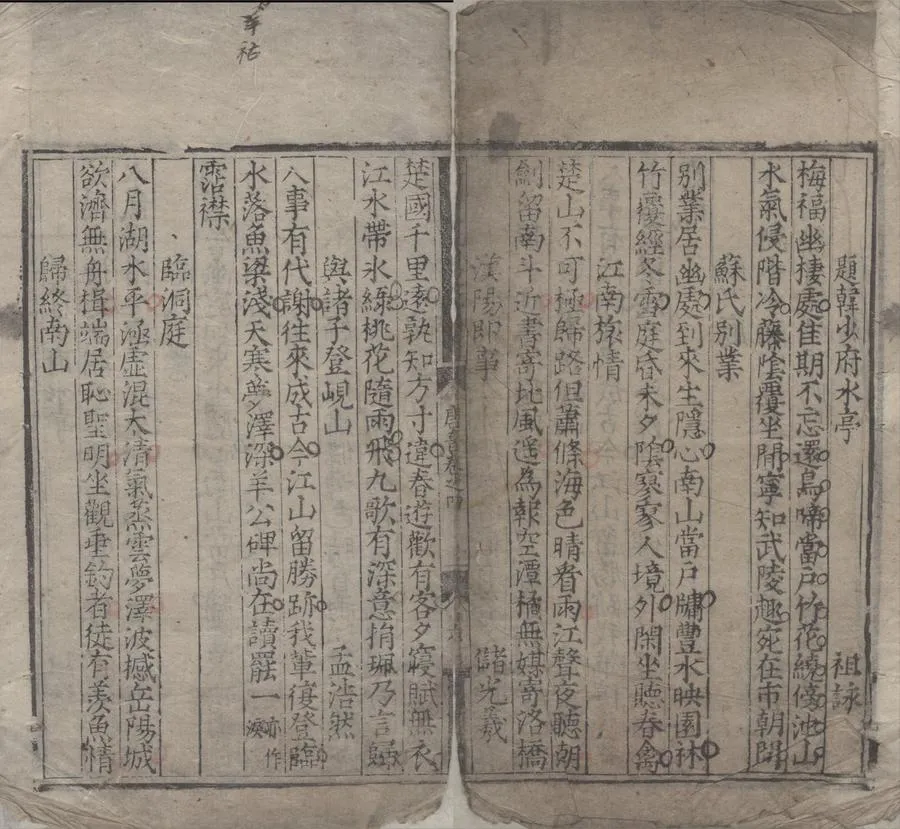 題韓少府水亭 祖詠
梅福幽棲處佳期不忘還鳥啼當戶竹花繞傍池山
水氣侵階冷藤陰覆坐閒寧知武陵趣宛在市朝間
蘇氏別業
別業居幽處到來生隱心南山當戶牖豐水映園林
竹覆經冬雪庭昏未夕陰寥寥人境外閑坐聽春禽
江南旅情
楚山不可極歸路但蕭條海色晴看雨江聲夜聽朝
劍留南斗近書寄北風遥為報空潭橘無媒寄洛橋
漢陽即事 儲光羲
唐音卷之四
楚國千里遠孰知方寸違春遊歡有客夕寢賦無衣
江水帶氷綠桃花隨雨飛九歌有深意捐珮乃言歸
與諸子登峴山 孟浩然
人事有代謝往來成古今江山留勝跡我輩復登臨
水落魚梁淺天寒夢澤深羊公碑尚在讀罷一 亦作淚
霑襟
臨洞庭
八月湖水平涵虛混太清氣蒸雲夢澤波撼岳陽城
欲濟無舟楫端居恥聖明坐觀垂釣者徒有羨魚情
歸終南山